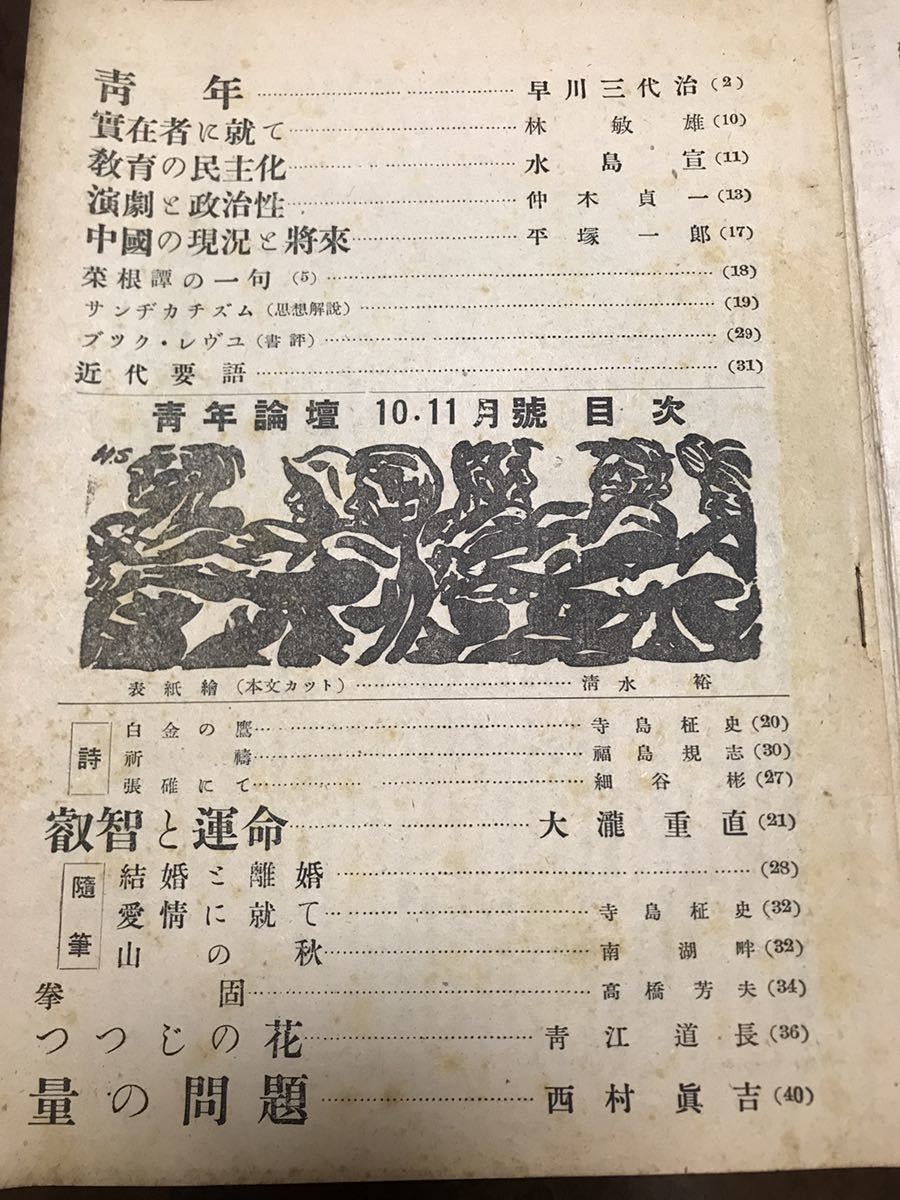 靑年 早川三代治 (2)
實在者に就て 林敏雄 (10)
敎育の民主化 水島宣 (11)
演劇と政治性 仲木貞一 (13)
中國の現況と將來 平塚一郎 (17)
菜根譚の一句 (5) (18)
サンヂカチズム (思想解說) (19)
ブツク・レヴユ (書評) (29)
近代要語 (31)
靑年論壇 10.11月號 目次
H.S
表紙繪 (本文カット) 淸水裕
詩
白金の鷹 寺島柾史 (20)
祈禱 福島規志 (30)
張碓にて 細谷彬 (27)
叡智と運命 大瀧重直 (21)
隨筆
結婚と離婚 (28)
愛情に就て 寺島柾史 (32)
山の秋 南湖畔 (32)
拳固 高橋芳夫 (34)
つつじの花 靑江道長 (36)
量の問題 西村眞吉 (40)